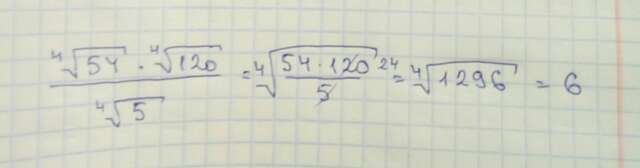 ⁴√54 · ⁴√120 / ⁴√5 = ⁴√(54 · 120 24 / 5) = ⁴√1296 = 6